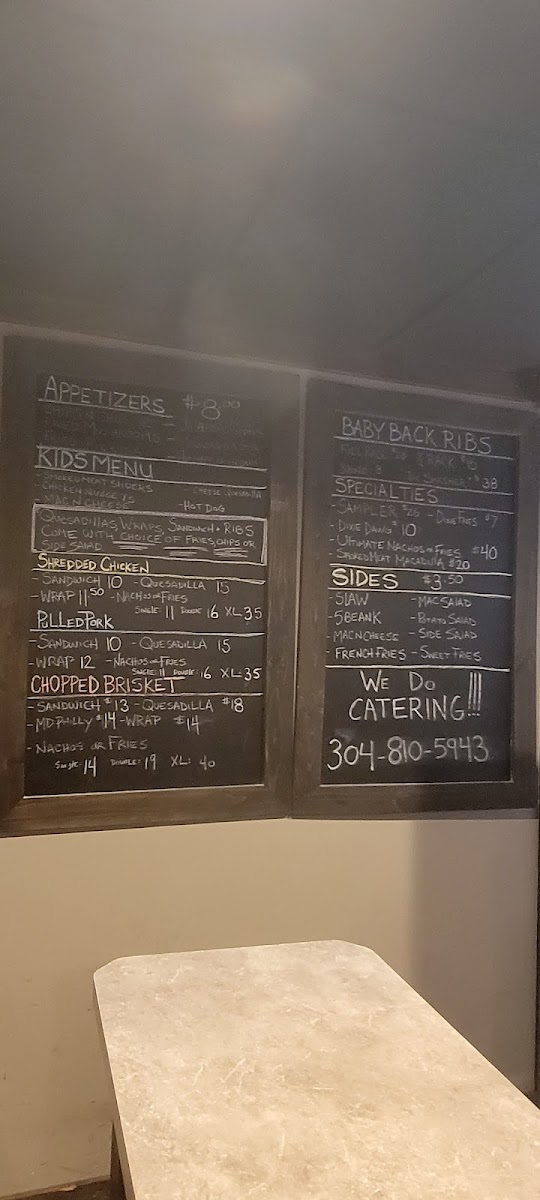 APPETIZERS $8.00
KIDS MENU
- SMOKED MEAT SLIDERS - CHEESE QUESADILLA
- CHICKEN NUGGETS
- MAC N CHEESE - HOT DOG
QUESADILLAS WRAPS, SANDWICH + RIBS
COME WITH CHOICE OF FRIES, CHIPS OR
SIDE SALAD
SHREDDED CHICKEN
- SANDWICH 10 - QUESADILLA 15
- WRAP 11.50 - NACHOS OR FRIES
SINGLE: 11 DOUBLE: 16 XL: 35
PULLED PORK
- SANDWICH 10 - QUESADILLA 15
- WRAP 12 - NACHOS OR FRIES
SINGLE: 11 DOUBLE: 16 XL: 35
CHOPPED BRISKET
- SANDWICH $13 - QUESADILLA $18
- MD PHILLY $14 - WRAP $14
- NACHOS OR FRIES
SINGLE: 14 DOUBLE: 19 XL: 40
BABY BACK RIBS
38
SPECIALTIES
- SAMPLER $26 - DIXIE FRIES $7
- DIXIE DAWG $10
- ULTIMATE NACHOS OR FRIES $40
SMOKED MEAT $20
SIDES $3.50
- SLAW - MAC SALAD
- 5 BEANK - POTATO SALAD
- MAC N CHEESE - SIDE SALAD
- FRENCH FRIES - SWEET FRIES
WE DO
CATERING!!!
304-810-5943